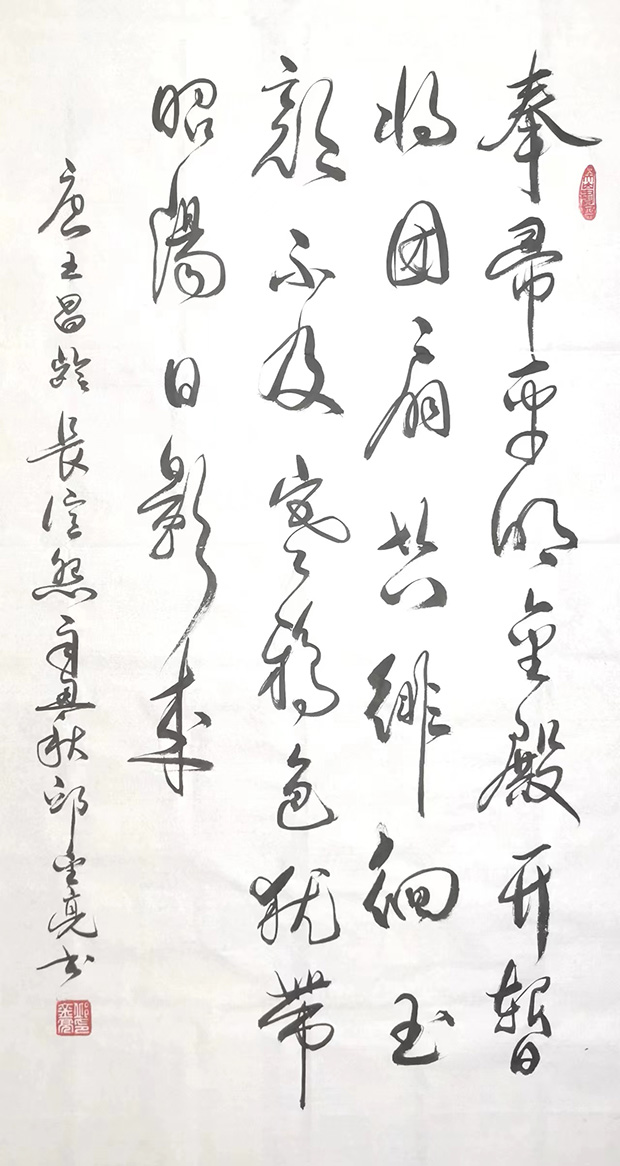 奉帚平明金殿开暂
将团扇共徘徊玉
颜不及寒鸦色犹带
昭阳日影来
唐王昌龄长信怨辛丑秋邱金亮书